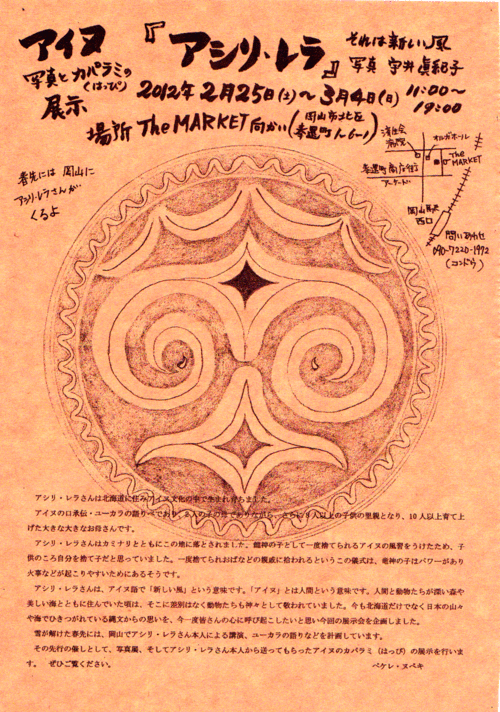 アイヌ
『アシリ・レラ』
それは新しい風
写真とカパラミの
(はっぴ)
展示
写真 宇井眞紀子
2012年2月25日(土)〜3月4日(日) 11:00〜
19:00
場所 The MARKET 向かい(岡山市北区
奉還町
春先には 岡山に
アシリ・レラさんが
くるよ
済生会
病院
オルガホール
The
MARKET
奉還町商店街
アーケード
岡山駅
西口
問いあわせ
090-7220-1992
(コンドウ)
アシリ・レラさんは北海道に住みアイヌ文化の中で生まれ育ちました。
アイヌの口承伝・ユーカラの語りべであり、人の子の母でありながら、さらに人以上の子供の里親となり、10人以上育て上
げた大きな大きなお母さんです。
アシリ・レラさんはカミナリとともにこの地に落とされました。龍神の子として一度捨てられるアイヌの風習をうけたため、子
供のころ自分を捨て子だと思っていました。一度捨てられおばなどの親戚に拾われるというこの儀式は、竜神の子はパワーがあり
火事などが起こりやすいためにあるそうです。
アシリ・レラさんは、アイヌ語で「新しい風」という意味です。「アイヌ」とは人間という意味です。人間と動物たちが深い森や
美しい海とともに住んでいた頃は、そこに差別はなく動物たちも神々として敬われていました。今も北海道だけでなく日本の山々
や海でひきつがれている縄文からの思いを、今一度皆さんの心に呼び起こしたいと思い今回の展示会を企画しました。
雪が解けた春先には、岡山でアシリ・レラさん本人による講演、ユーカラの語りなどを計画しています。
その先行の儀として、写真展、そしてアシリ・レラさん本人から送ってもらったアイヌのカパラミ(はっぴ)の展示を行いま
す。 ぜひご覧ください。 ペケレ・ヌペキ